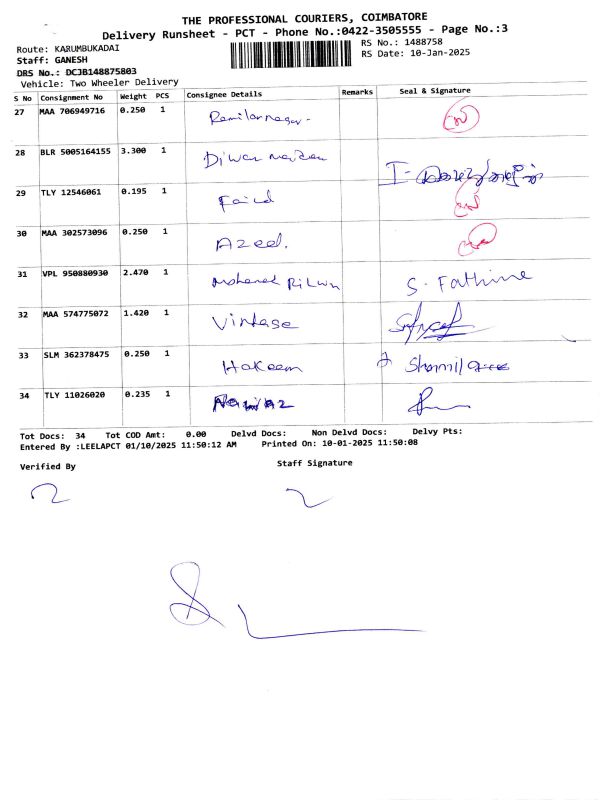 THE PROFESSIONAL COURIERS, COIMBATORE
Delivery Runsheet - PCT - Phone No.:0422-3505555 - Page No.:3
Route: KARUMBUKADAI
RS No.: 1488758
Staff: GANESH
RS Date: 10-Jan-2025
DRS No.: DCJB148875803
Vehicle: Two Wheeler Delivery
S No Consignment No Weight PCS Consignee Details Remarks Seal & Signature
27 MAA 706949716 0.250 1
28 BLR 5005164155 3.300 1
29 TLY 12546061 0.195 1
30 MAA 302573096 0.250 1 Azeed.
31 VPL 950880930 2.470 1 S. Fathima
32 MAA 574775072 1.420 1 Vintase
33 SLM 362378475 0.250 1 Hakeem
34 TLY 11026020 0.235 1 Nawaz
Tot Docs: 34 Tot COD Amt: 0.00 Delvd Docs: Non Delvd Docs: Delvy Pts:
Entered By :LEELAPCT 01/10/2025 11:50:12 AM Printed On: 10-01-2025 11:50:08
Verified By
Staff Signature